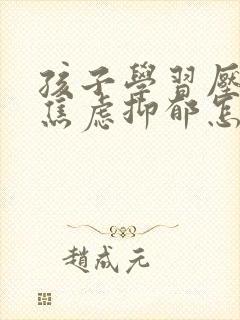 孩子學習壓
焦慮抑郁怎
趙成元